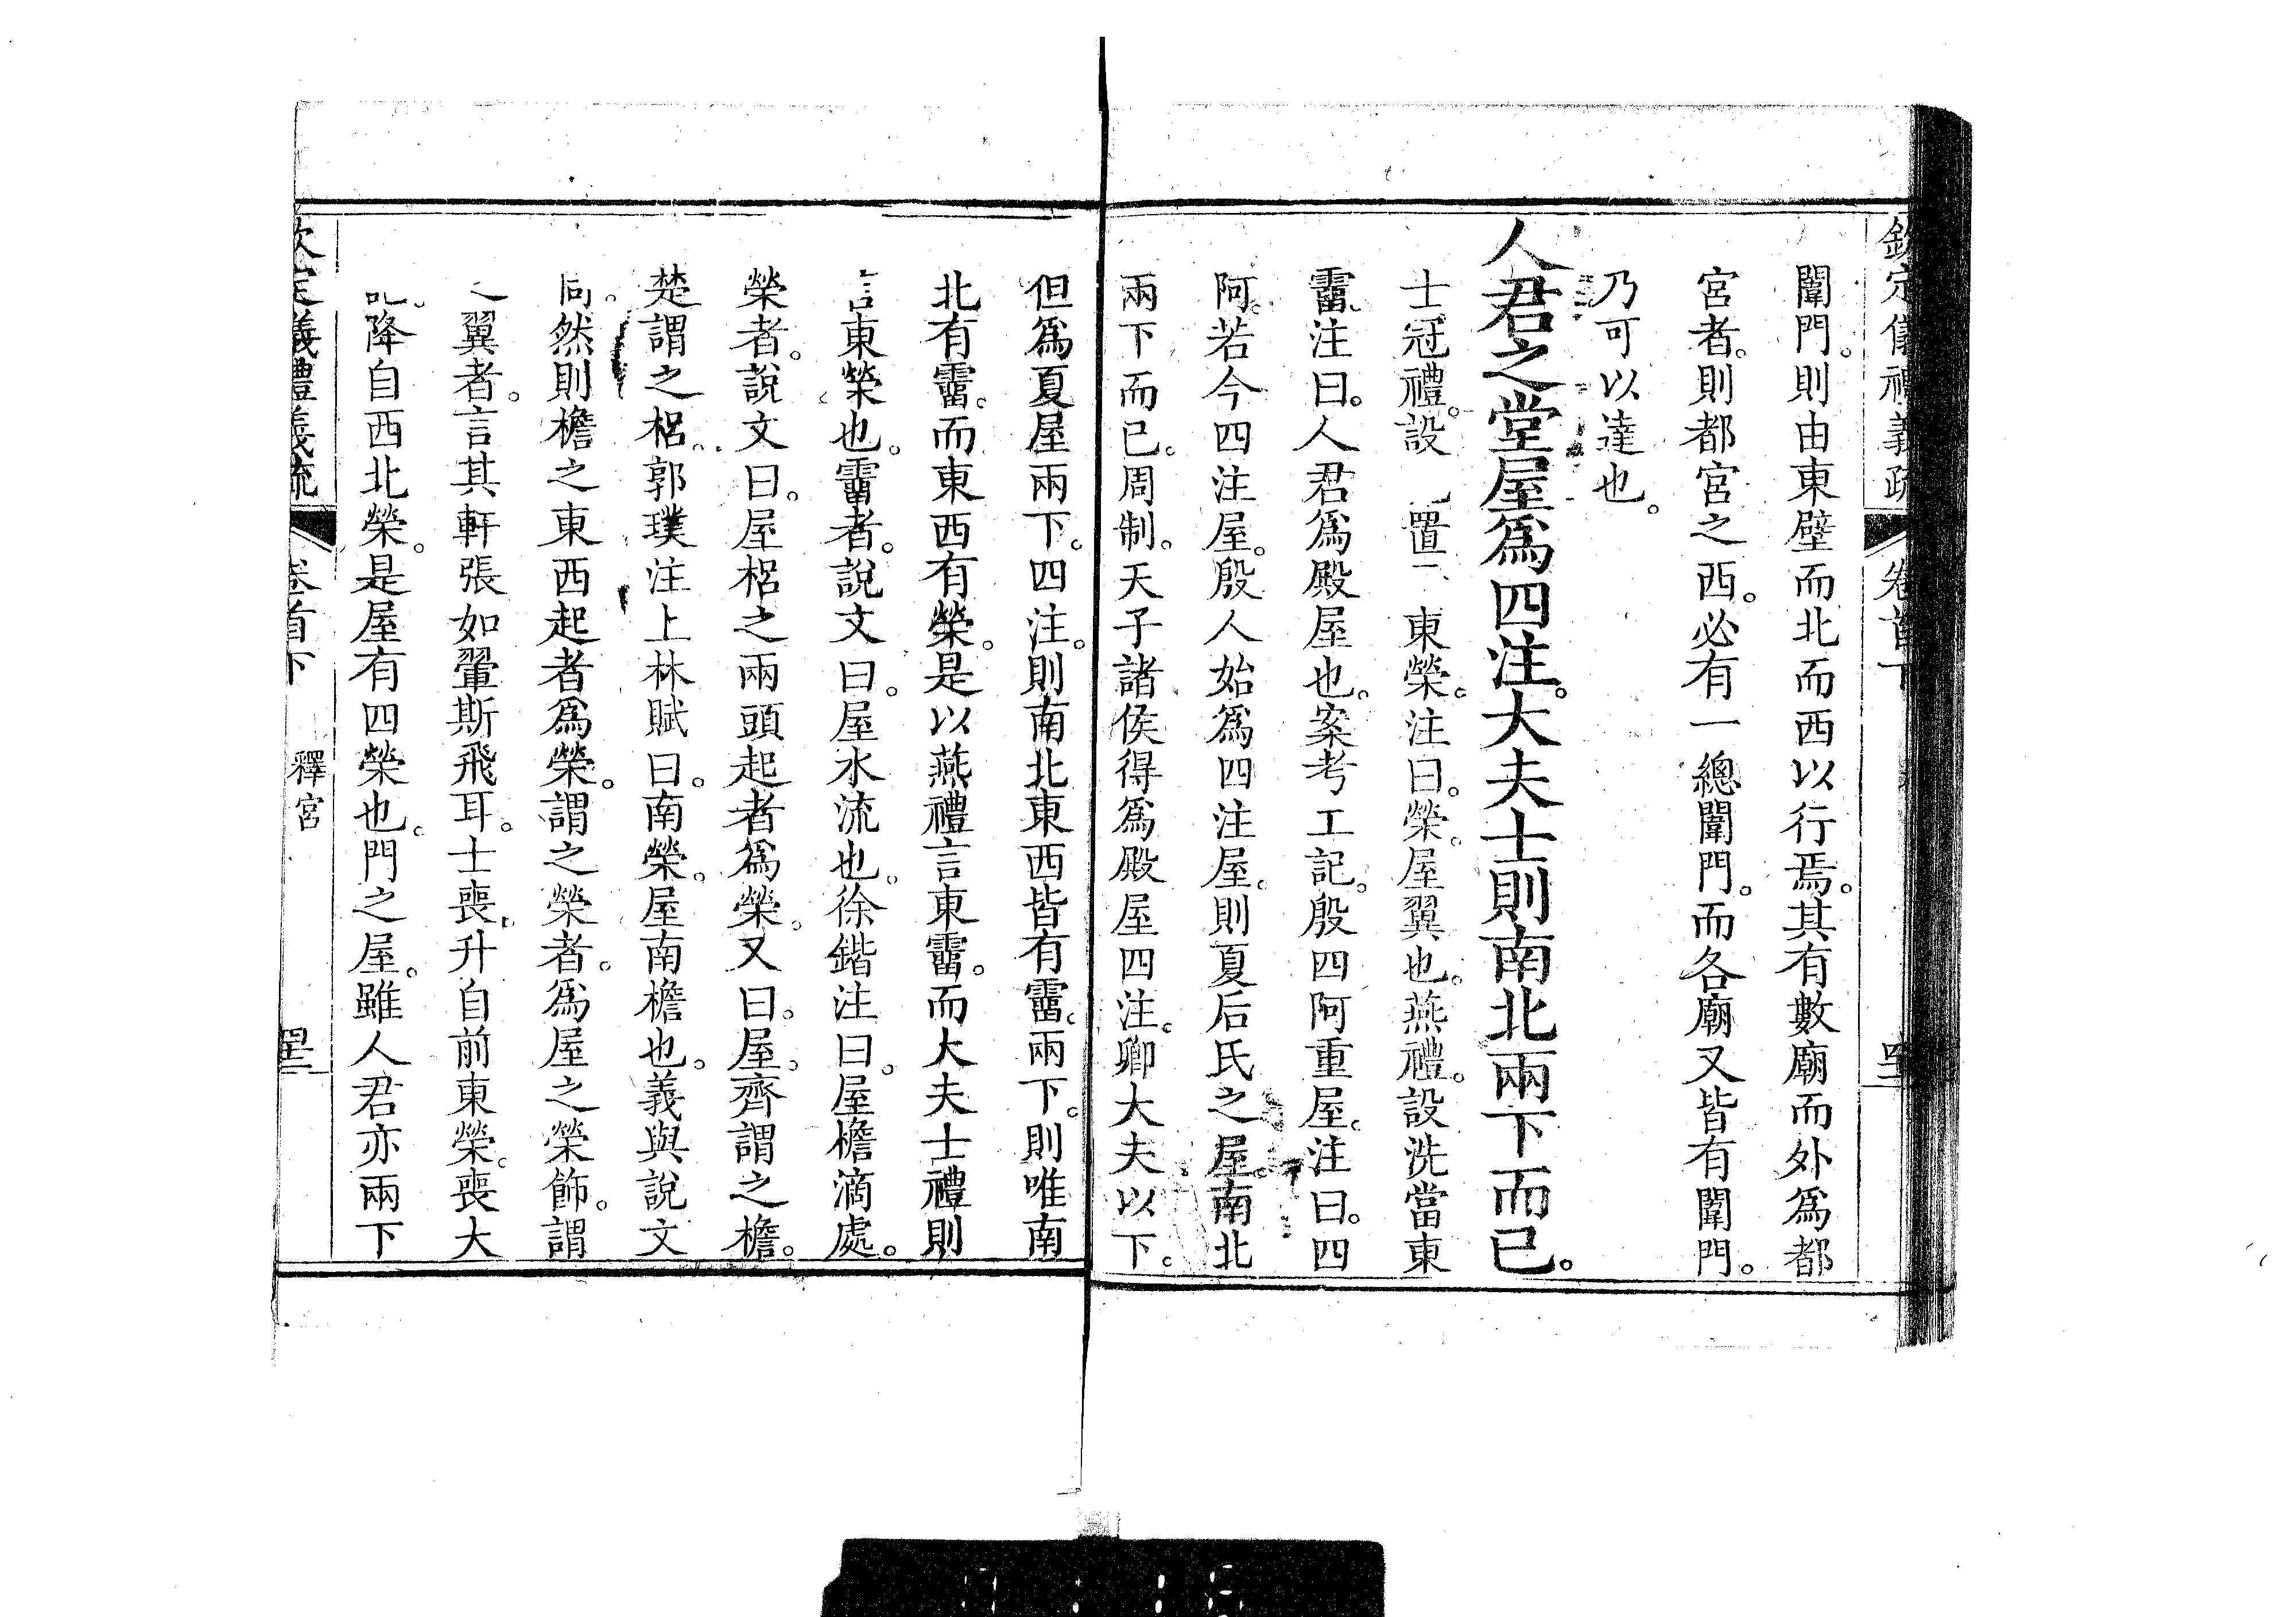 欽定儀禮義疏 卷首下
闈門。則由東壁而北而西以行焉。其有數廟而外爲都
宮者。則都宮之西。必有一總闈門。而各廟又皆有闈門。
乃可以達也。
人君之堂屋爲四注。大夫士則南北兩下而已。
士冠禮。設 置 東榮。注曰。榮。屋翼也。燕禮。設洗當東
霤。注曰。人君爲殿屋也。案考工記。殷四阿重屋。注曰。四
阿。若今四注屋。殷人始爲四注屋。則夏后氏之屋。南北
兩下而已。周制。天子諸侯得爲殿屋四注。卿大夫以下。
但爲夏屋兩下。四注。則南北東西皆有霤。兩下。則唯南
北有霤。而東西有榮。是以燕禮言東霤。而大夫士禮則
言東榮也。霤者。說文曰。屋水流也。徐鍇注曰。屋檐滴處。
榮者。說文曰。屋梠之兩頭起者爲榮。又曰。屋。齊謂之檐。
楚謂之梠。郭璞注上林賦曰。南榮。屋南檐也。義與說文
同。然則檐之東西起者爲榮。謂之榮者。爲屋之榮飾。謂
之翼者。言其軒張如翬斯飛耳。士喪。升自前東榮。喪大
記。降自西北榮。是屋有四榮也。門之屋。雖人君亦兩下
欽定儀禮義疏 卷首下 釋宮